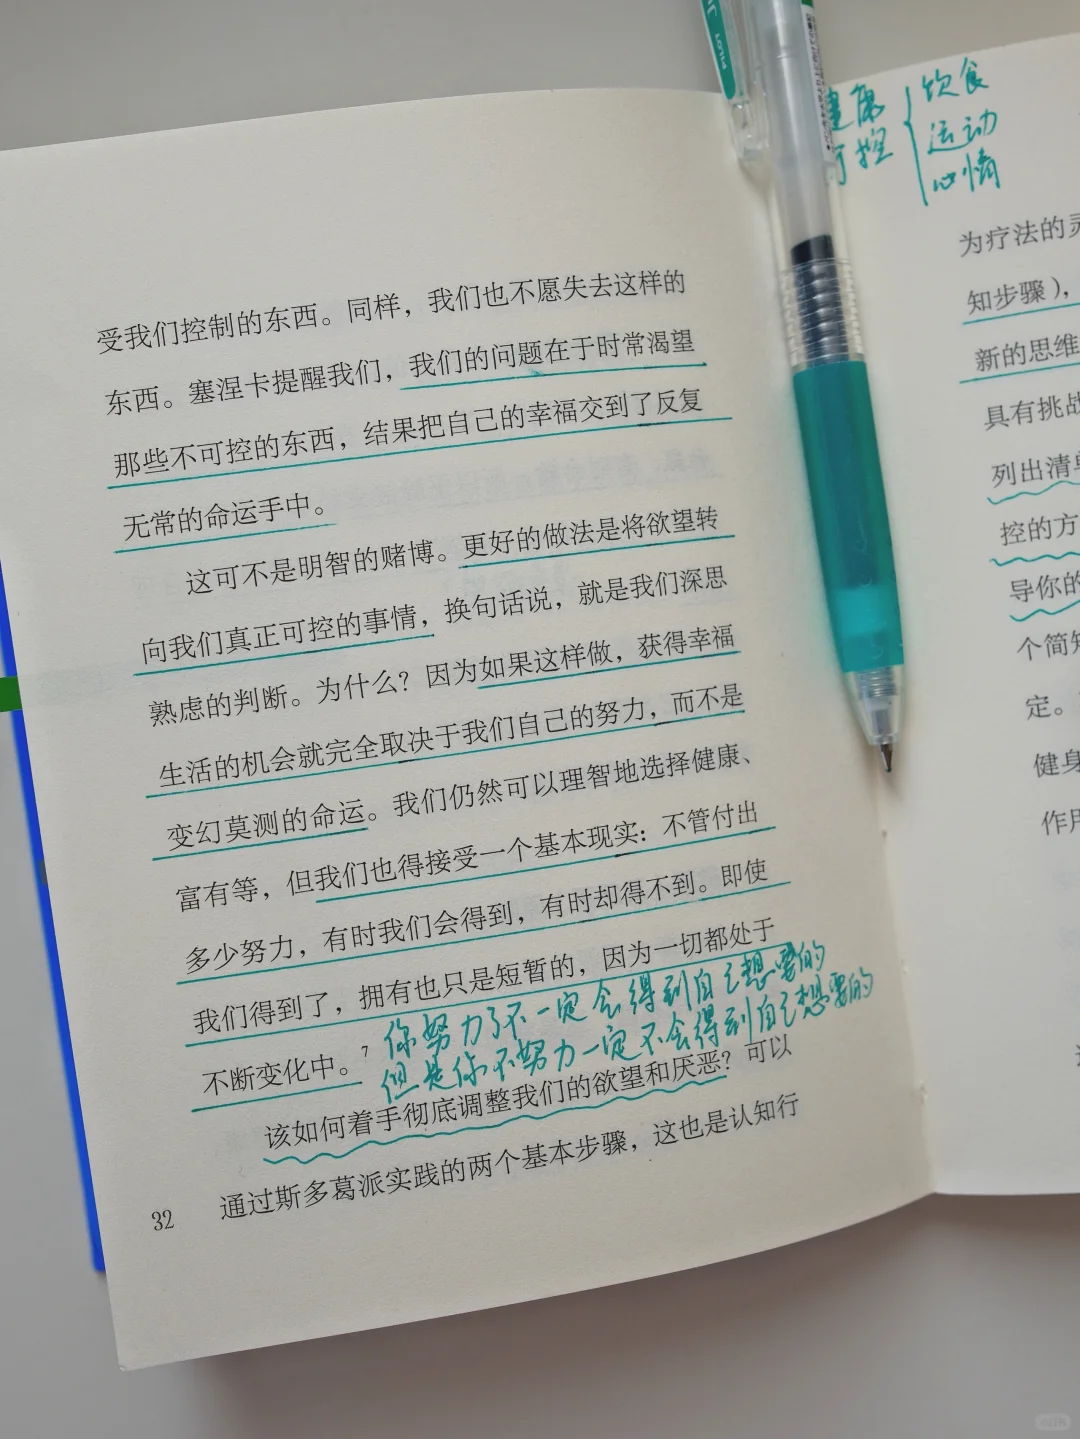 受我们控制的东西。同样，我们也不愿失去这样的
东西。塞涅卡提醒我们，我们的问题在于时常渴望
那些不可控的东西，结果把自己的幸福交到了反复
无常的命运手中。
这可不是明智的赌博。更好的做法是将欲望转
向我们真正可控的事情，换句话说，就是我们深思
熟虑的判断。为什么？因为如果这样做，获得幸福
生活的机会就完全取决于我们自己的努力，而不是
变幻莫测的命运。我们仍然可以理智地选择健康、
富有等，但我们也得接受一个基本现实：不管付出
多少努力，有时我们会得到，有时却得不到。即使
我们得到了，拥有也只是短暂的，因为一切都处于
不断变化中。7
你努力了不一定会得到自己想要的
但是你不努力一定不会得到自己想要的
该如何着手彻底调整我们的欲望和厌恶？可以
通过斯多葛派实践的两个基本步骤，这也是认知行
32
PILOT
健康
可控
饮食
运动
心情
为疗法的
知步骤），
新的思维
具有挑战
列出清单
控的方
导你的
个简短
定。
健身
作用